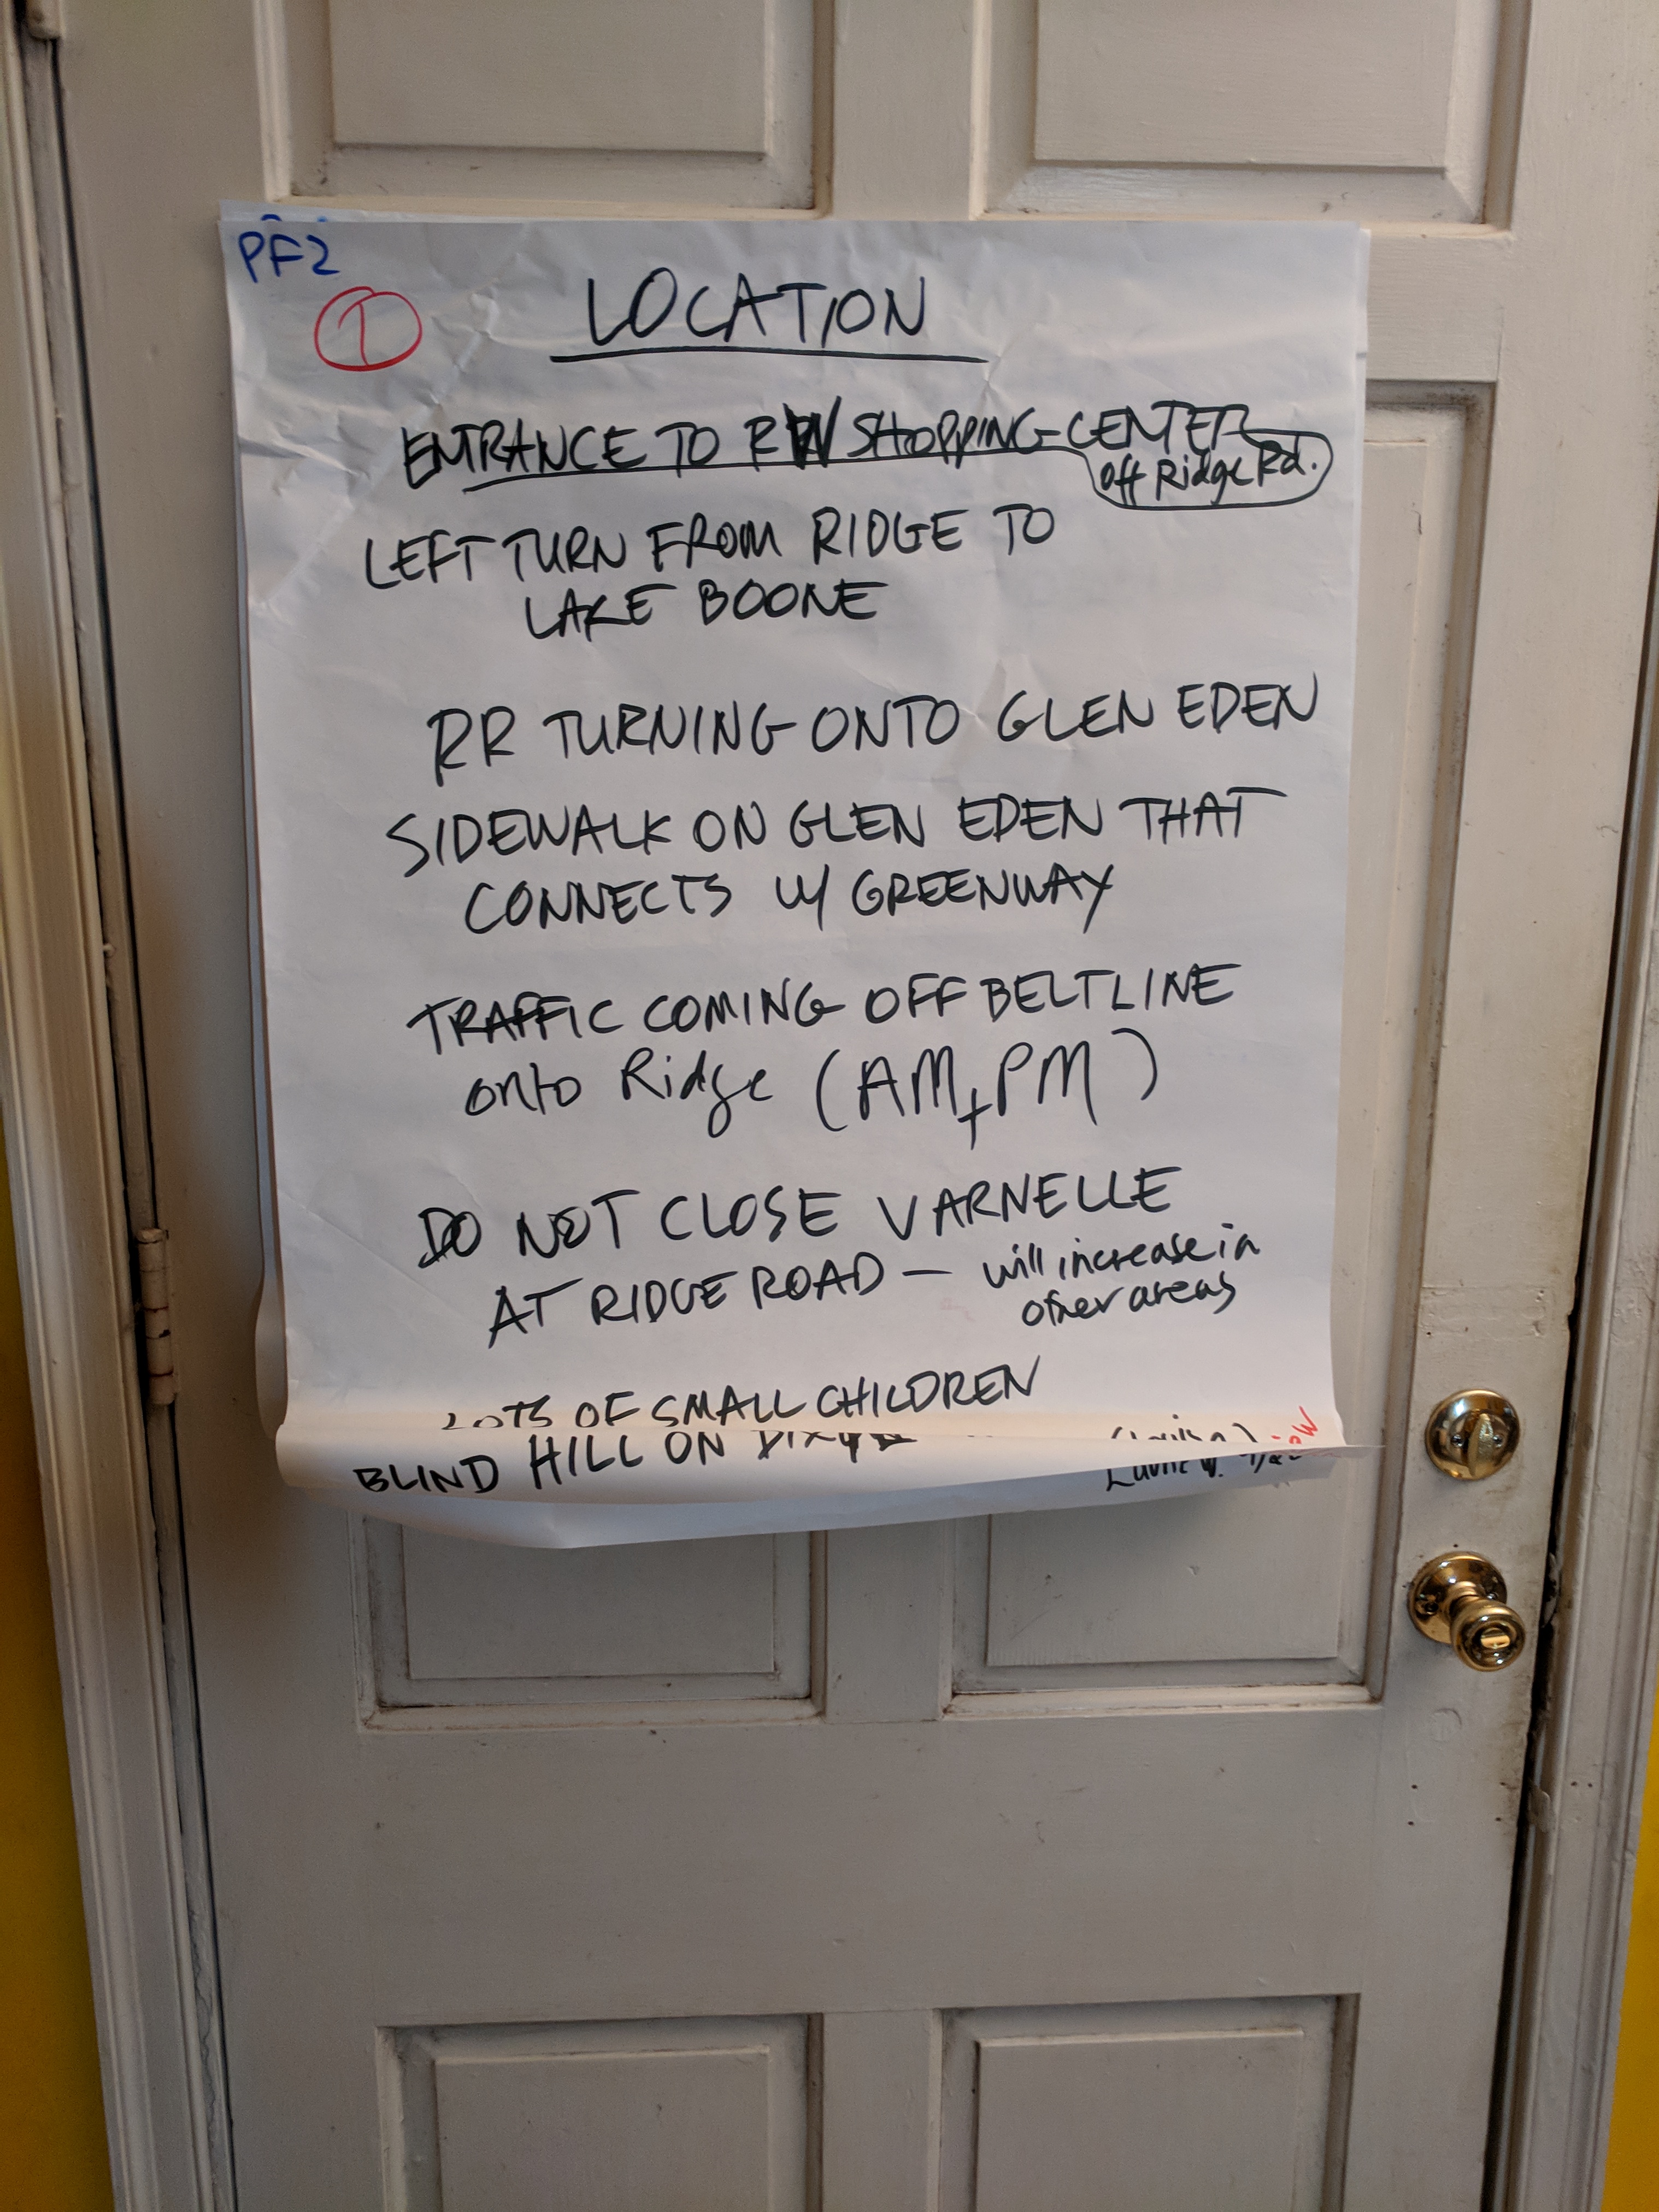 PF2
1
LOCATION
ENTRANCE TO RW SHOPPING CENTER
off Ridge Rd.
LEFT TURN FROM RIDGE TO
LAKE BOONE
RR TURNING ONTO GLEN EDEN
SIDEWALK ON GLEN EDEN THAT
CONNECTS W/ GREENWAY
TRAFFIC COMING OFF BELTLINE
onto Ridge (AM + PM)
DO NOT CLOSE VARNELLE
AT RIDGE ROAD — will increase in
other areas
LOTS OF SMALL CHILDREN
BLIND HILL ON